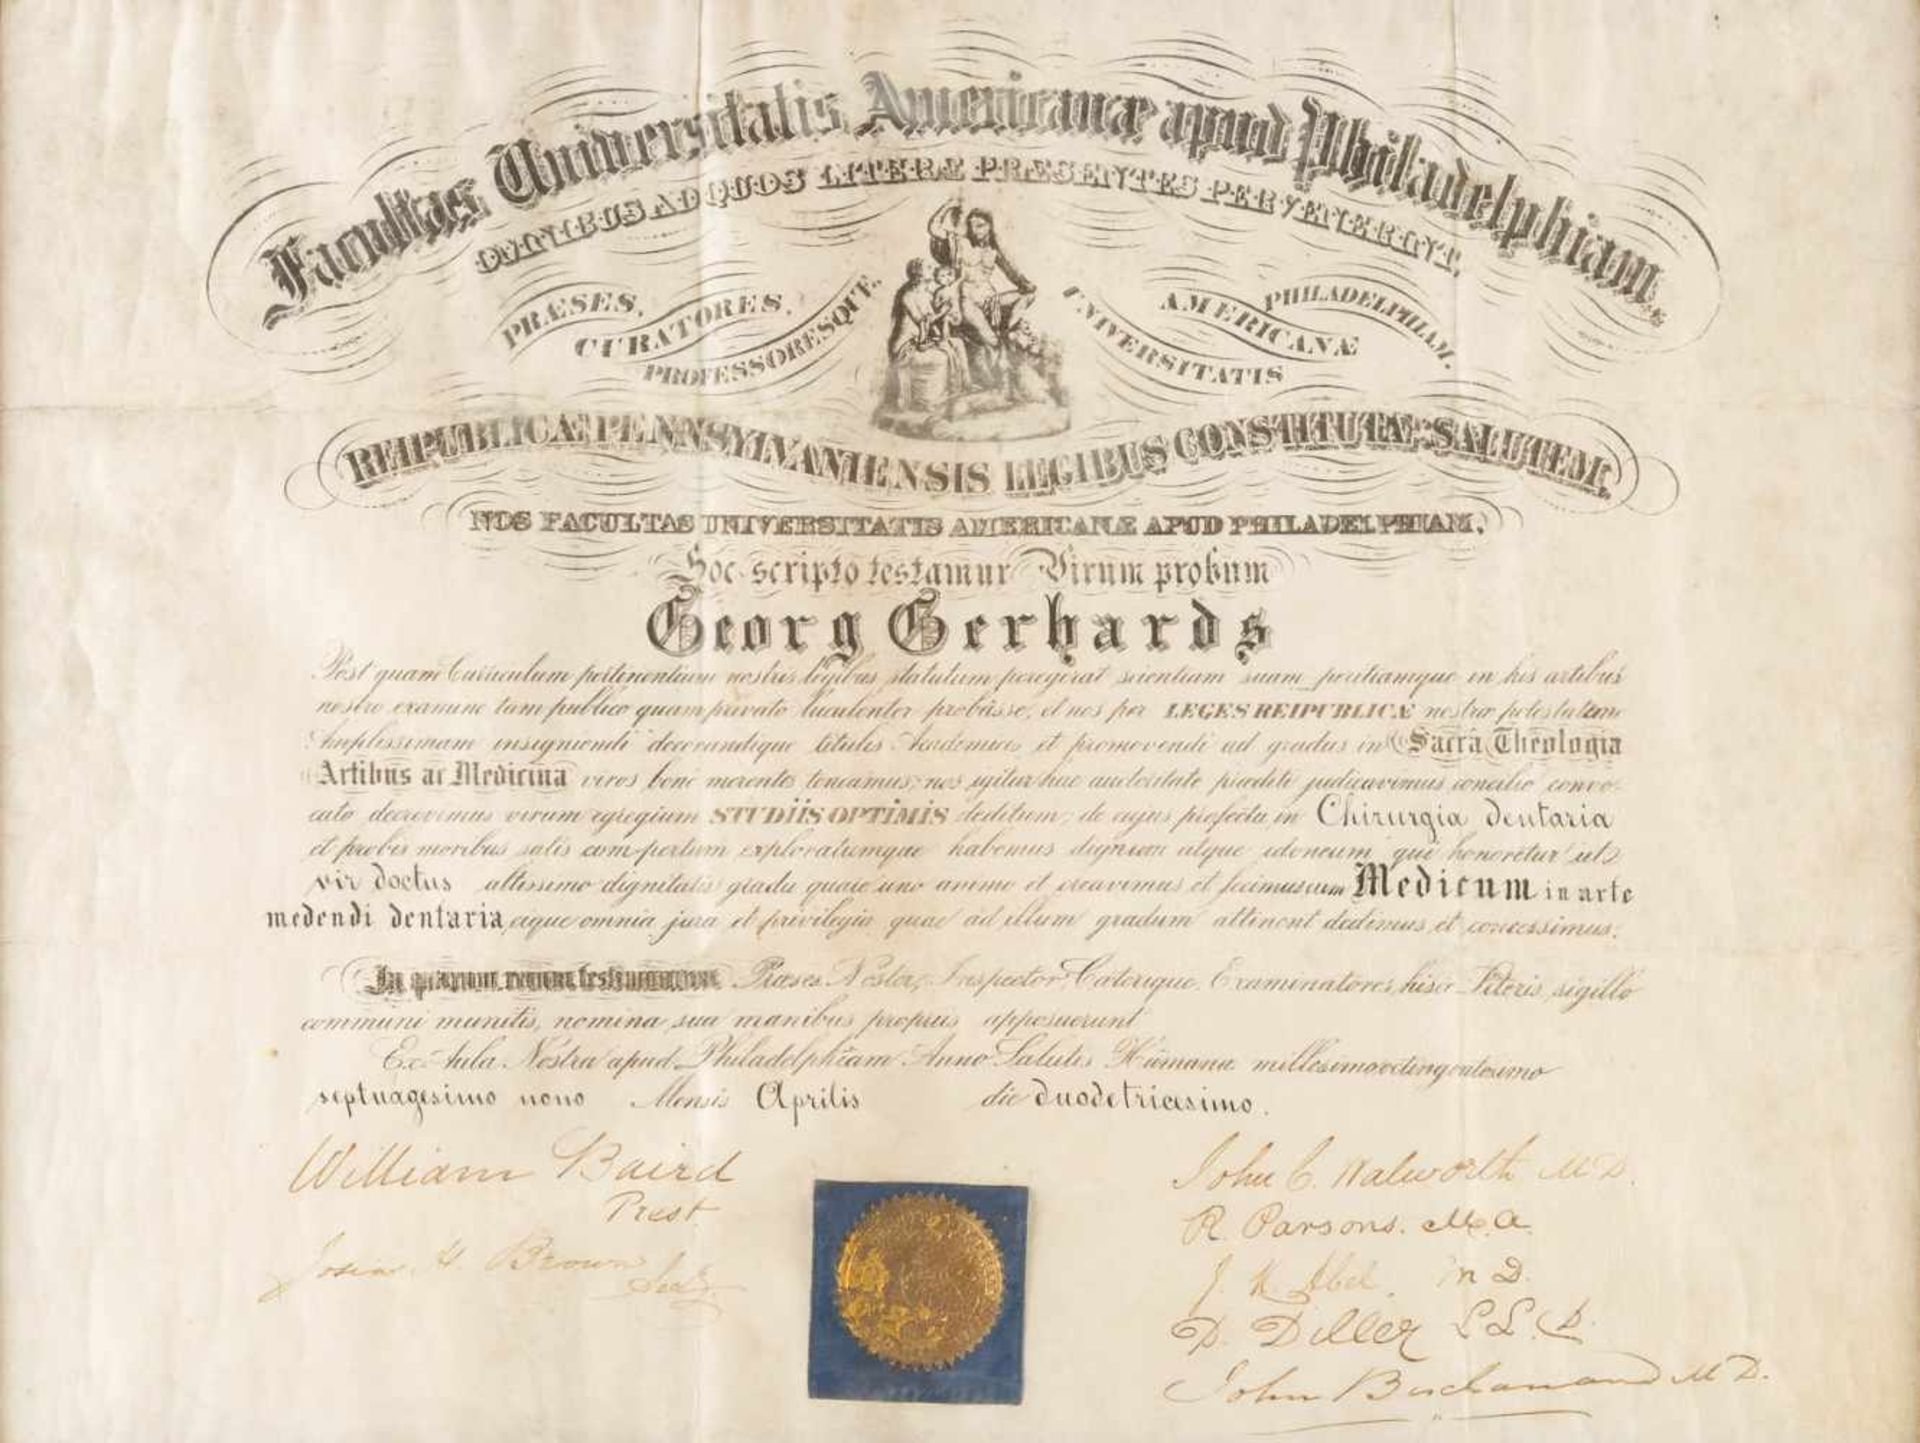 Facultas Universitatis Americanæ apud Philadelphiam,
OMNIBUS AD QUOS LITERÆ PRÆSENTES PERVENERINT,
PRÆSES, CURATORES, PROFESSORESQUE, UNIVERSITATIS AMERICANÆ PHILADELPHIAM,
REIPUBLICÆ PENNSYLVANIENSIS LEGIBUS CONSTITUTÆ: SALUTEM,
NOS FACULTAS UNIVERSITATIS AMERICANÆ APUD PHILADELPHIAM,
Hoc scripto testamur Virum probum
Georg Gerhards
Post quam Curriculum pertinentium nostris legibus statutum peregirat scientiam suam peritiamque in his artibus
nostro examine tam publico quam privato luculenter probâsse, et nos per LEGES REIPUBLICÆ nostræ potestatem
Amplissimam insigniendi decorandique titulis Academicis et promovendi ad gradus in Sacrâ Theologia
Artibus ac Medicina viros bene merentes teneamus; nos igitur hac auctoritate præditi judicavimus concilio convo-
cato decrevimus virum egregium STUDIIS OPTIMIS deditum; de cujus profectu in Chirurgia dentaria
et probis moribus satis compertum exploratumque habemus dignum atque idoneum qui honoretur ut
vir doctus altissimo dignitatis gradu quare uno animo et creavimus et fecimus eum Medicum in arte
medendi dentaria, eique omnia jura et privilegia quae ad illum gradum attinent dedimus et concessimus.
In quarum rerum testimonium Præses Noster, Inspector Caterique Examinatores hisce Literis sigillo
communi munitis, nomina sua manibus propriis apposuerunt
Ex Aula Nostra apud Philadelphiam Anno Salutis Humanæ millesimo octingentesimo
septuagesimo nono Mensis Aprilis die duodetricesimo.
William Baird
Prest
Josiah H. Brown
Secty
John C. Walworth M D.
R. Parsons. M. A.
J. K Abel. M D.
D. Diller L L. D.
John Buchanan M D.